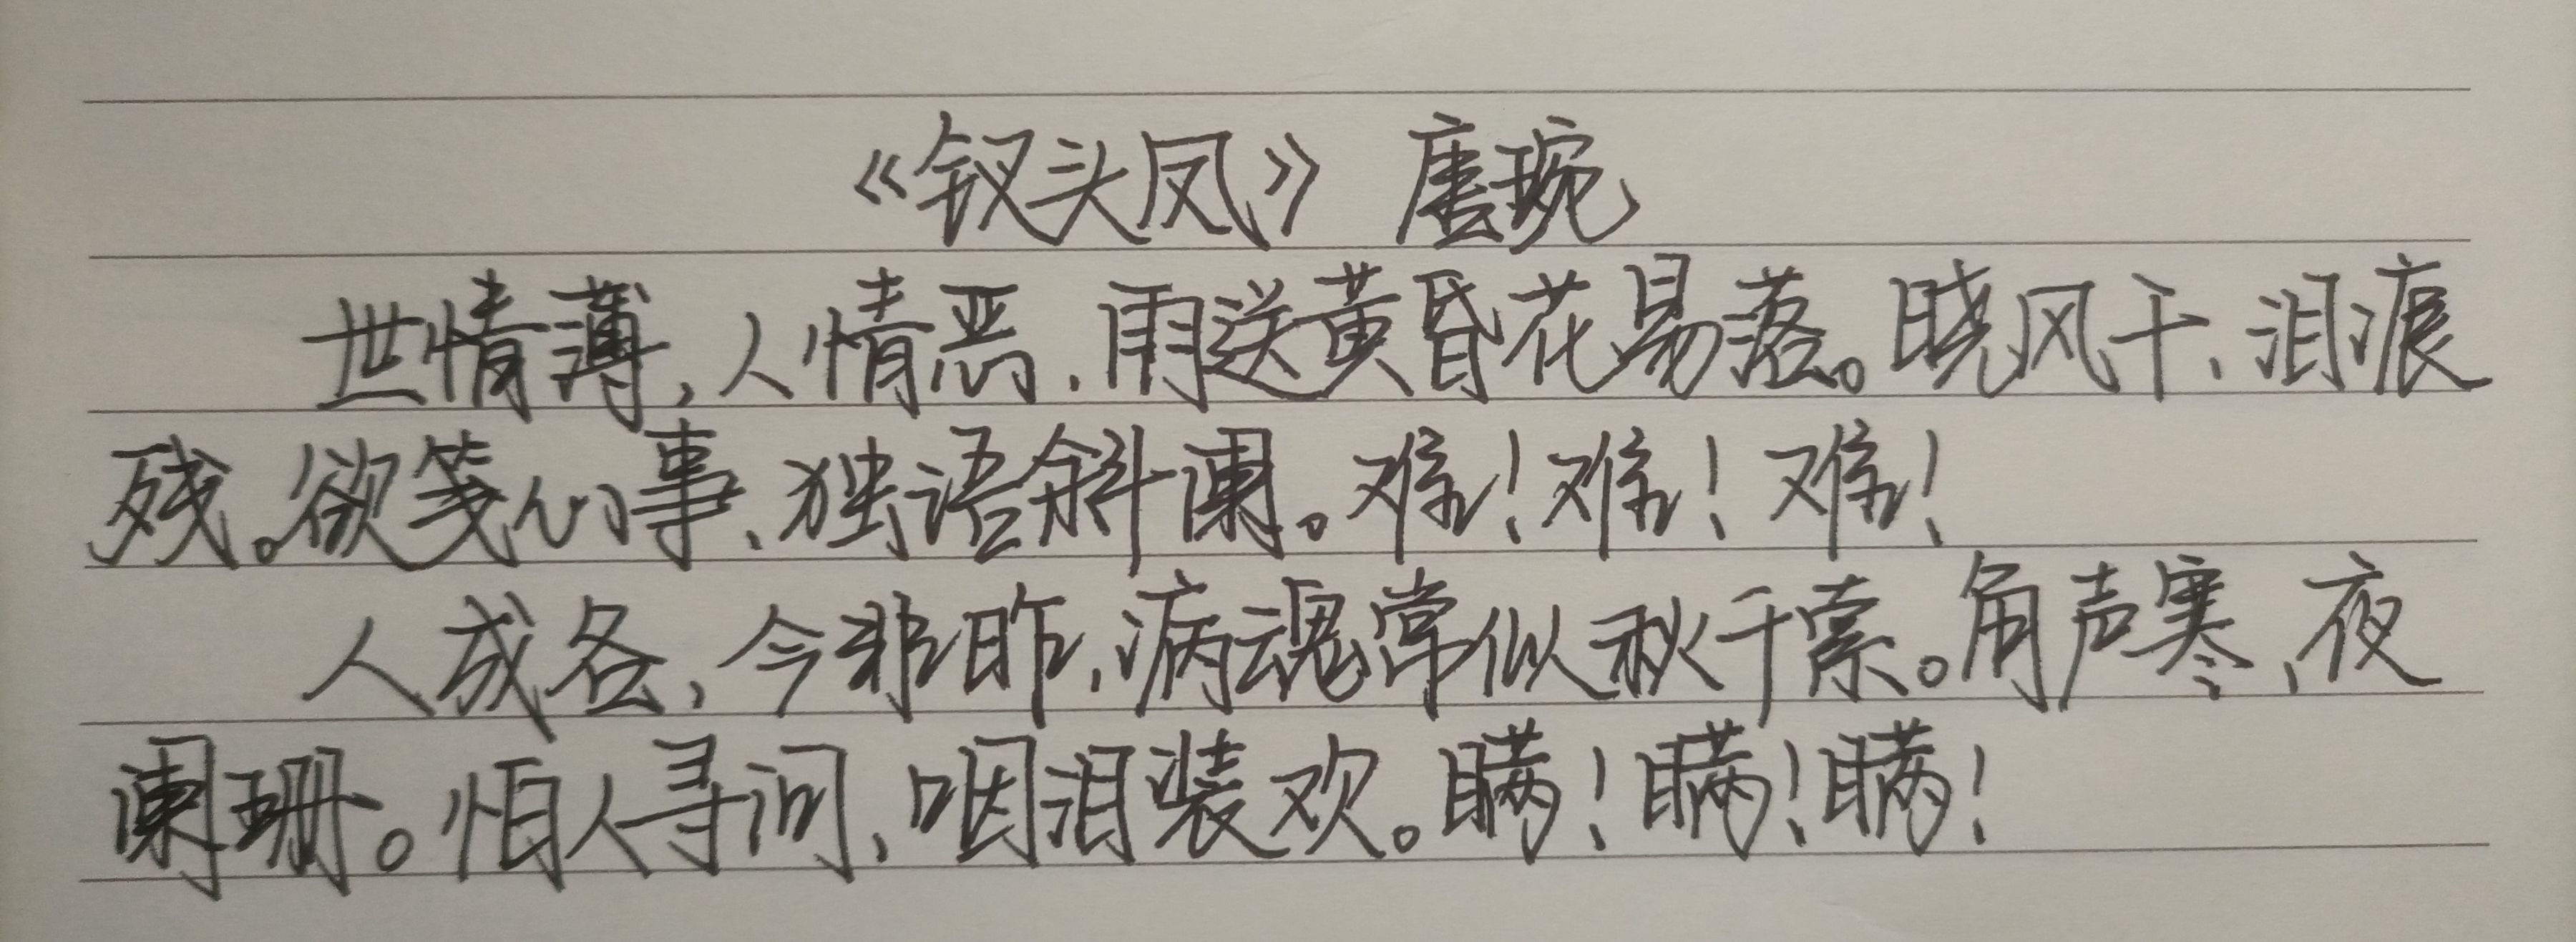 《钗头凤》 唐琬
世情薄，人情恶，雨送黄昏花易落。晓风干，泪痕
残。欲笺心事，独语斜阑。难！难！难！
人成各，今非昨，病魂常似秋千索。角声寒，夜
阑珊。怕人寻问，咽泪装欢。瞒！瞒！瞒！